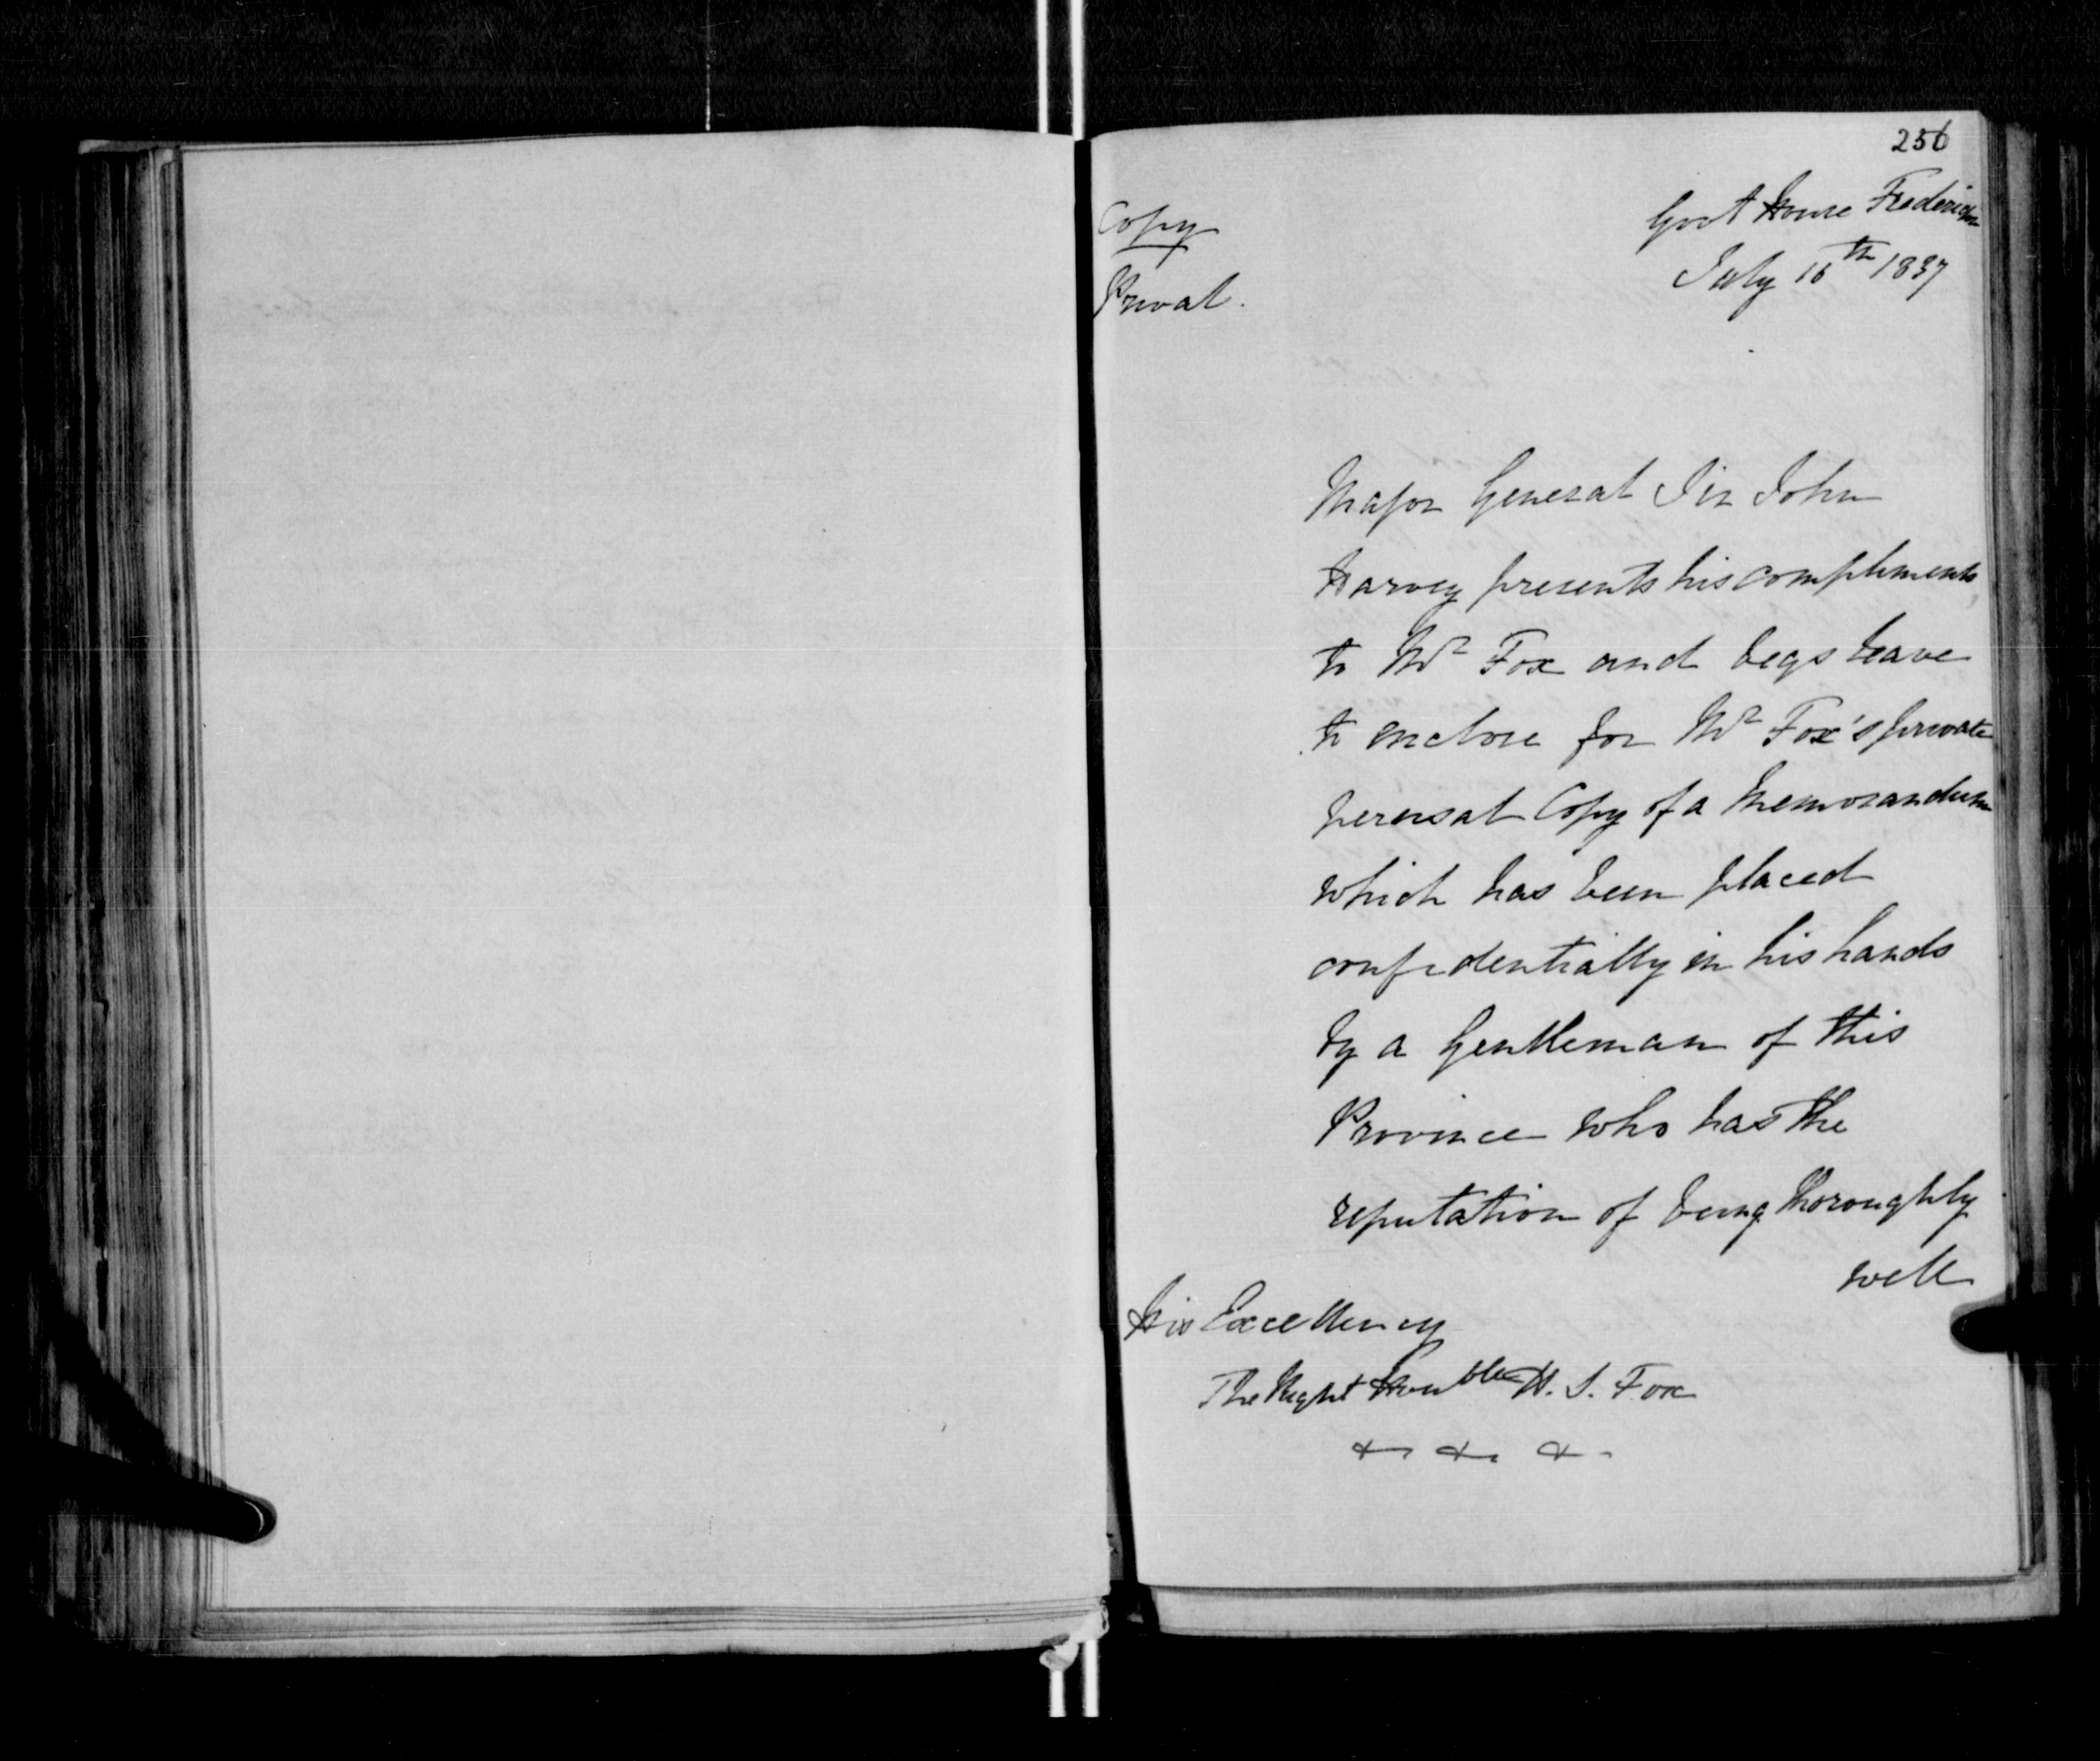 256
Copy
Govt House Fredericton
July 16th 1837
Privat.
Major General Sir John
Harvey presents his compliments
to Mr Fox and begs leave
to enclose for Mr Fox's private
perusal Copy of a Memorandum
which has been placed
confidentially in his hands
by a Gentleman of this
Province who has the
reputation of being thoroughly
well
His Excellency
The Right Honble H. S. Fox